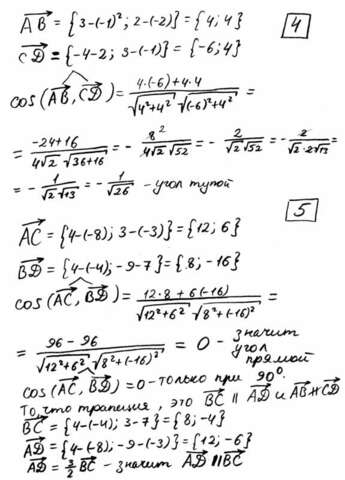 AB = {3-(-1)²; 2-(-2)} = {4; 4}
4
CD = {-4-2; 3-(-1)} = {-6; 4}
cos(AB, CD) = 4·(-6)+4·4 / √4²+4² √(-6)²+4² =
= -24+16 / 4√2 √36+16 = - 8² / 4√2 √52 = - 2 / √2 √52 = - 2 / √2·2√13 =
= - 1 / √2 √13 = - 1 / √26 - угол тупой
5
AC = {4-(-8); 3-(-3)} = {12; 6}
BD = {4-(-4); -9-7} = {8; -16}
cos(AC, BD) = 12·8+6(-16) / √12²+6² √8²+(-16)² =
= 96-96 / √12²+6² √8²+(-16)² = 0 - значит угол прямой
cos(AC, BD) = 0 - только при 90°.
То, что трапеция, это BC || AD и AB ∦ CD
BC = {4-(-4); 3-7} = {8; -4}
AD = {4-(-8); -9-(-3)} = {12; -6}
AD = 3/2 BC - значит AD || BC